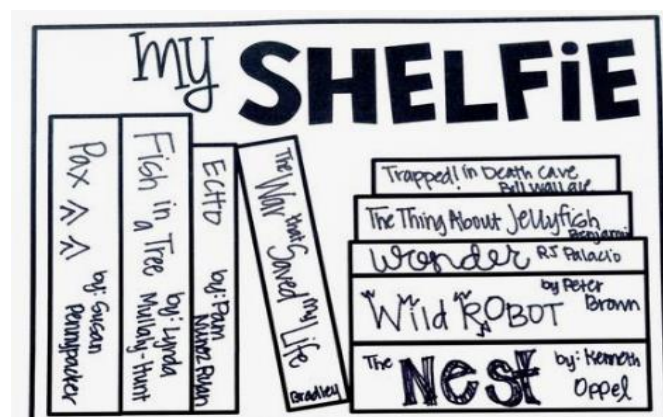 my SHELFiE
Pax
by: Susan
Pennypacker
Fish in
a Tree
by: Lynda
Mullaly-Hunt
ECHO
by: Pam
Munoz Ryan
The War that Saved my Life
Bradley
Trapped! in Death Cave
Bill Wallace
The Thing About Jellyfish
Benjamin
Wonder RJ Palacio
Wild ROBOT by Peter
Brown
The Nest by: Kenneth
Oppel